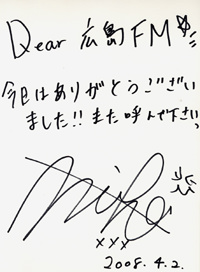 Dear 広島FM
今日はありがとうござい
ました!! また呼んで下さい。
xxx
2008.4.2.